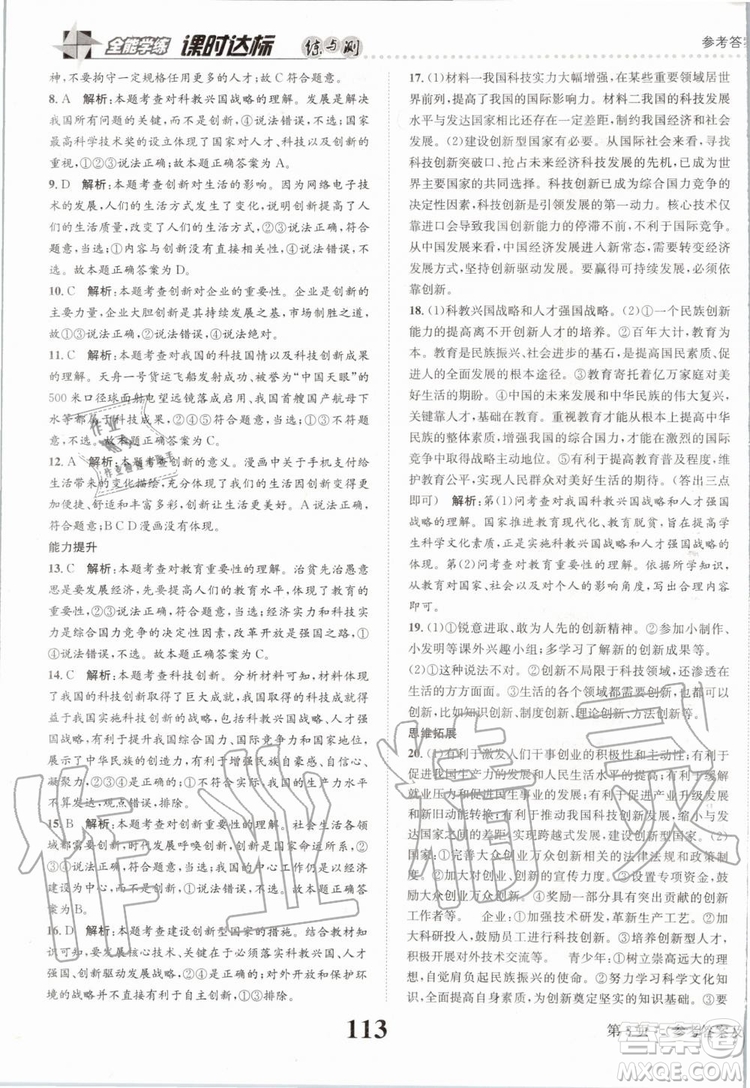 全能学练 课时达标 练与测
参考答案
神，不拘于一定规格任用更多的人才；故符合题意。
8. A 解析：本题考查对科教兴国战略的理解。发展是解决
我国所有问题的关键，而不是创新，④说法错误，不选。国家
最高科学技术奖的设立体现了国家对人才、科技、知识、创造
的重视，①②③说法正确；故本题正确答案是A。
9. D 解析：本题考查创新对生活的影响。因为网络电子技
术的发展，人们的生活方式发生了改变，创新提高了人们的
生活质量，改变了人们的生活方式，②④说法正确，符合题
意，当选；①内容与创新没有直接相关性；③说法错误，不
选。故本题正确答案为D。
10. C 解析：本题考查创新对企业的重要性。企业是创新的
主要力量，企业大胆创新是其提高质量、占领市场制胜之道，
故②③符合题意；①说法错误，④说法绝对。
11. C 解析：本题考查对我国的科技国情以及科技创新成果
的理解。天舟一号货运飞船发射、被誉为“中国天眼”的
500米口径球面射电望远镜落成启用、我国首艘国产航母下
水等都属于科技成果，故②④⑤符合题意；①③不符合题意，
不选。故本题正确答案为C。
12. A 解析：本题考查创新的意义。漫画中关于手机支付给
生活带来的变化的描绘，体现了创新让生活更便捷、更舒适，
创新让生活多姿多彩、丰富多彩，创新给我们带来惊喜，A符
合题意，正确；BCD漫画没有体现。
能力提升
13. C 解析：本题考查教育重要性的理解。治贫先治愚意思
是要发展经济，先要提高人的素质，这就要求大力发展教育，
因为教育能提高人们的思想道德素质和科学文化素质，①④
说法正确，符合题意；②③说法错误，经济实力和科技实力是
综合国力竞争的决定性因素，改革开放是强国之路，②③说
法错误，不选。故本题正确答案为C。
14. C 解析：本题考查科技创新。分析材料可知，材料体现
了我国的科技创新取得了巨大成就，这些成就的取得得益
于我国实施科技创新的战略，包括科教兴国战略、人才强国
战略等，有利于提升我国综合国力、国际竞争力和国家地位，
展示了中华民族的创造力，增强了民族自尊心、自信心、
凝聚力；故①②④正确；③不符合实际，我国的生产力水平
不平衡、不发达；观点错误，排除。
15. B 解析：本题考查对创新重要性的理解。社会各个生活
领域都需要创新，时代发展呼唤创新，①③说法正确，符合题
意，当选；②错误，改革创新关乎国家命运，而不是决定；
④错误，我国的中心工作仍然是经济建设。故本题正确答案
为B。
16. D 解析：本题考查建设创新型国家的措施。结合教材知
识可知，要建设创新型国家在于必须落实科教兴国战略和人
才强国战略，提高自主创新能力，尊重知识、尊重人才等，故
②④说法正确且符合题意；对外开放的基本国策和保护环
境的基本国策与题意无关；①③不符合题意，排除。
17. (1)材料一我国科技实力大幅增强，在某些重要领域居世
界前列，提高了我国的国际影响力。材料二我国的科技发展
水平与发达国家仍存在一定差距，科技创新的能力有待提
高。(2)建设创新型国家有必要。从国际社会来看，哪个国家
科技创新突破口，抢占未来经济科技发展的先机，已成为各
国竞争的核心。科技创新能力已成为综合国力竞争的决定
性因素，科技创新是引领发展的第一动力。所以，我国不能
仅靠进口，这会导致我国创新能力的停滞不前，不利于国际竞争。
从中国发展来看，中国经济发展进入新常态，需要转变发展
方式，坚持创新驱动发展。要赢得可持续发展，必须依靠科
技创新。
18. (1)科教兴国战略和人才强国战略。(2)①一个民族创新
能力的提高离不开创新人才的培养。②百年大计，教育为
本。教育是民族振兴、社会进步的基石，是提高国民素质、促
进人的全面发展的根本途径。③教育寄托着亿万家庭对美
好生活的期盼。④教育对提高人民综合素质、增强中华民族
创造力、实现中华民族伟大复兴具有决定性意义。⑤强国必
先强教，人才基础在教育。重视教育可以从根本上提高中华
民族的整体素质，增强综合国力，在日益激烈的国际竞争中
取得战略主动地位。⑥发展教育有利于促进教育公平发展，
维护教育公平，满足人民对美好生活的期待。(答出三点
即可) 解析：第(1)问考查对我国科教兴国战略和人才强国
战略的理解。教育部开展的相关活动，有利于丰富学生的科
学文化知识，增强科学兴趣，说明我国重视教育事业，提高学
生科学文化素养，体现我国实施科教兴国战略和人才强国战
略。第(2)问考查对教育重要性的理解，可以从教育对个人、
教育对国家、教育对社会发展等角度组织答案，符合题意
即可。
19. (1)①锐意进取、敢为人先的创新精神。②参加小制作、
小发明等课外兴趣小组；多学习了解创新的创新成果等。
(2)①这种说法不正确。②创新不局限于科技领域，还渗透在
生活的方方面面。③生活的各个领域都需要创新，也都可以
创新，比如知识创新、制度创新、理论创新、方法创新等。
思维拓展
20. (1)有利于激发人们干事创业的积极性和主动性；有利于
促进我国经济发展和人民生活水平的提高；有利于实现中华
民族伟大复兴的中国梦；有利于促进产业升级和创新发展，
增强综合国力；有利于提升我国的国际竞争力，缩小与发
达国家的差距，实现跨越式发展；有利于建设创新型国家。(2)
国家：①完善大众创业万众创新的法律法规和政策制度。
②大力宣传大众创业万众创新的意义。③设置专项资金，鼓
励大众创业万众创新。④奖励一部分作出突出贡献的创新
工作者等。 企业：①加强技术研发，革新生产工艺。②加
大科研投入，重奖研发人员进行科技创新。③培养创新人才，加强
对外技术交流等。 青少年：①树立崇高远大的理想，
自觉肩负起民族振兴的使命。②努力学习科学文化知识，
为创新奠定坚实的知识基础。
113
作业精灵
答案圈
MXQE.COM